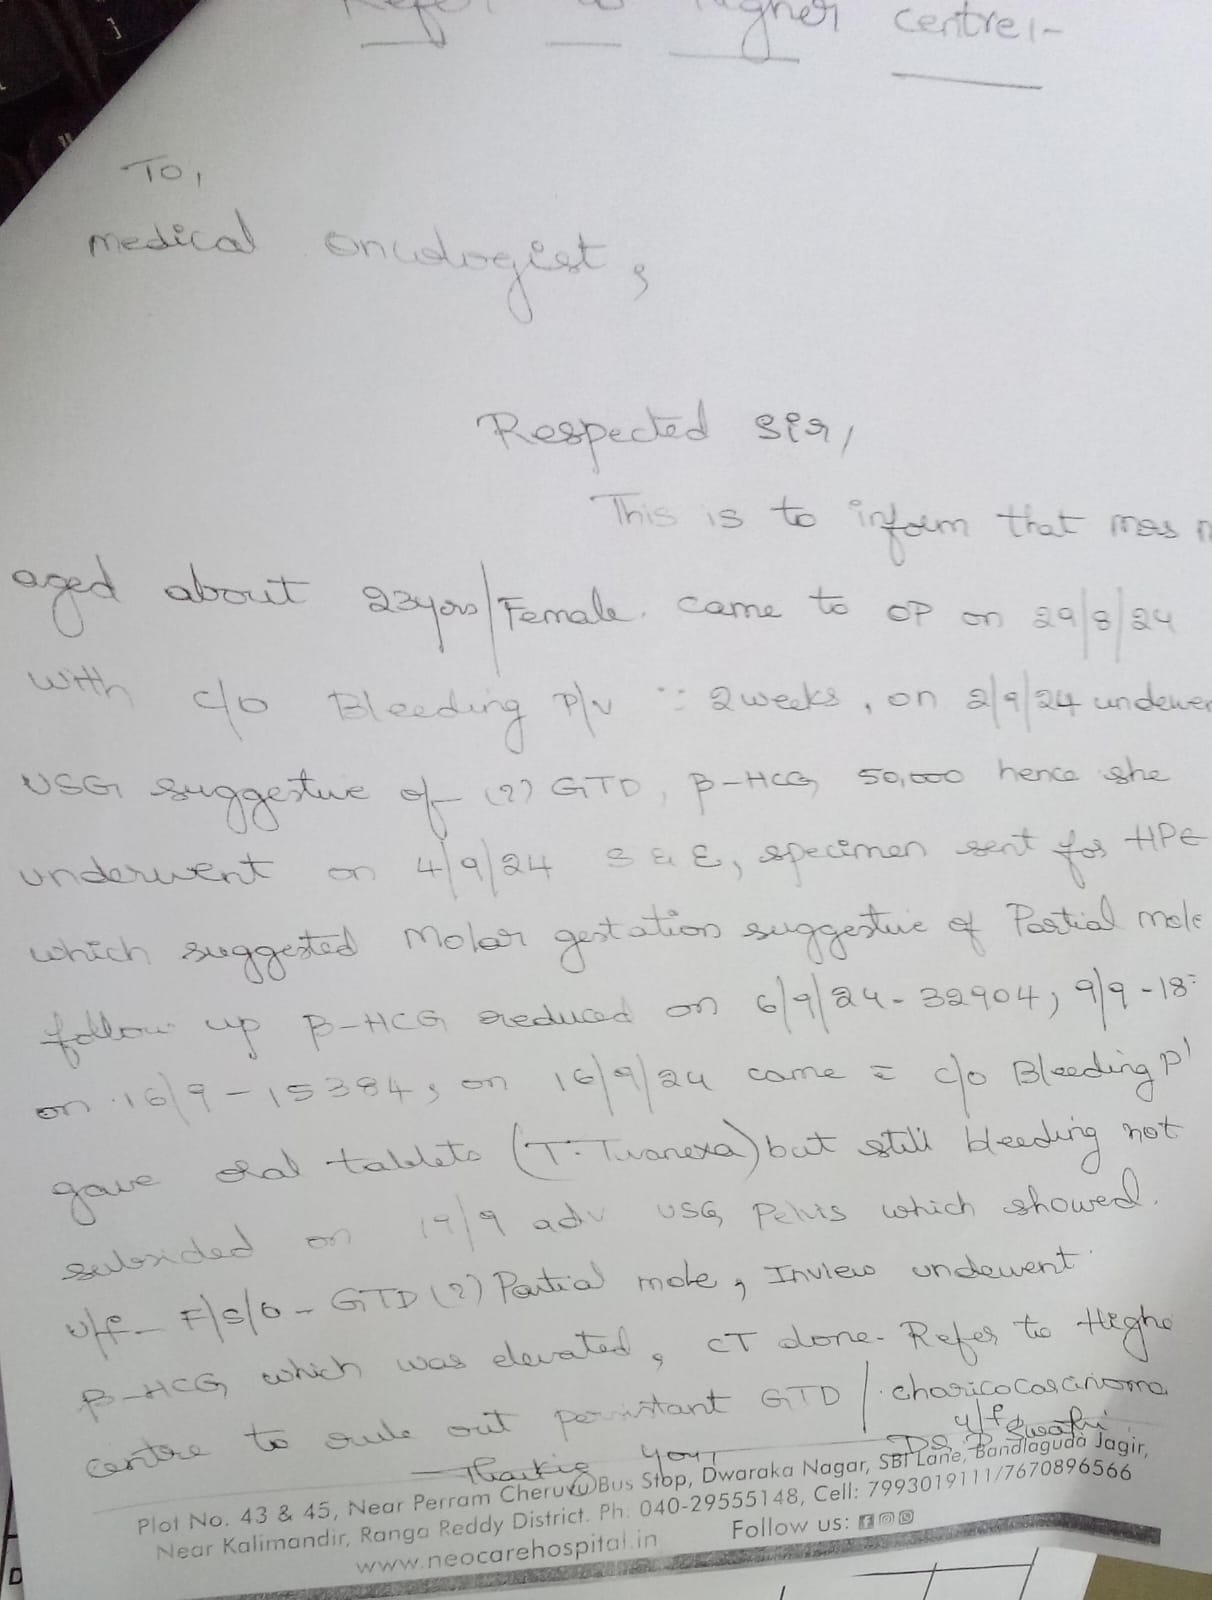 Refer to Higher centre:-
To,
medical oncologist,
Respected Sir,
This is to inform that mrs
aged about 23yrs/Female. came to OP on 29/8/24
with c/o Bleeding P/v :: 2 weeks, on 2/9/24 underwen
USG suggestive of (?) GTD, β-HCG 50,000 hence she
underwent on 4/9/24 S & E, specimen sent for HPE
which suggested Molar gestation suggestive of Partial mole
follow up β-HCG reduced on 6/9/24 - 32904, 9/9 - 18
on 16/9 - 15384, on 16/9/24 came c c/o Bleeding P/
gave oral tablets (T. Tranexa) but still bleeding not
subsided on 19/9 adv USG Pelvis which showed.
u/f - F/S/O - GTD (?) Partial mole, Inview underwent
β-HCG which was elevated, CT done. Refer to Highe
centre to rule out persistant GTD / choricocarcinoma
Thanking your
Dr. P Swathi
Plot No. 43 & 45, Near Perram Cheruvu Bus Stop, Dwaraka Nagar, SBI Lane, Bandlaguda Jagir,
Near Kalimandir, Ranga Reddy District. Ph: 040-29555148, Cell: 7993019111/7670896566
www.neocarehospital.in Follow us: